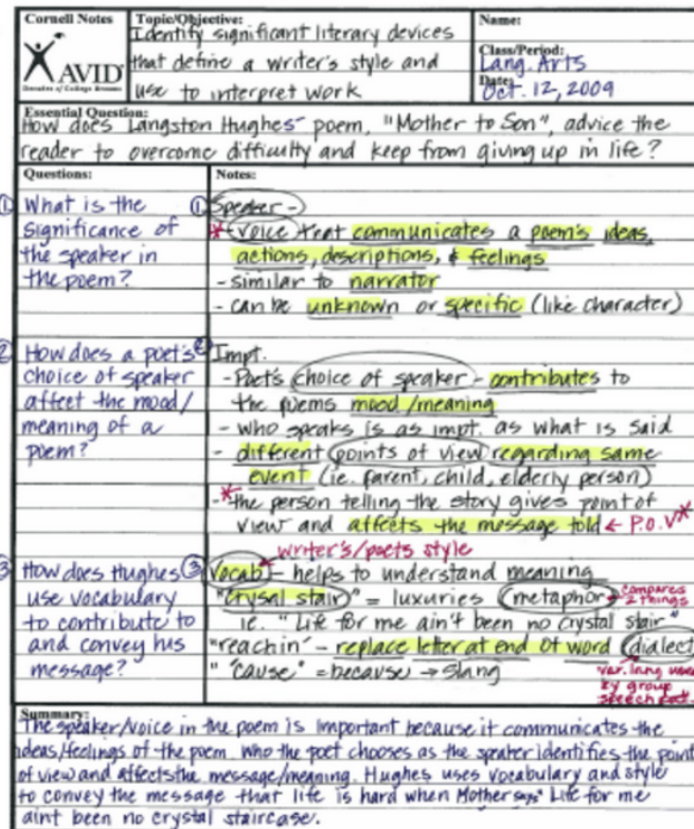 Cornell Notes
AVID
Decades of College Dreams
Topic/Objective:
Identify significant literary devices
that define a writer's style and
use to interpret work
Name:
Class/Period:
Lang. Arts
Date:
Oct. 12, 2009
Essential Question:
How does Langston Hughes' poem, "Mother to Son", advice the
reader to overcome difficulty and keep from giving up in life?
Questions:
① What is the
significance of
the speaker in
the poem?
② How does a poet's
choice of speaker
affect the mood/
meaning of a
poem?
③ How does Hughes
use vocabulary
to contribute to
and convey his
message?
Notes:
① Speaker -
* - voice that communicates a poem's ideas,
actions, descriptions, & feelings
- similar to narrator
- can be unknown or specific (like character)
② Impt.
- Poet's choice of speaker - contributes to
the poems mood/meaning
- who speaks is as impt. as what is said
- different points of view regarding same
event (ie. parent, child, elderly person)
- * the person telling the story gives point of
view and affects the message told ← P.O.V *
writer's/poets style
③ Vocab - helps to understand meaning
"crysal stair" = luxuries metaphor → compares
2 things
ie. "Life for me ain't been no crystal stair"
"reachin" - replace letter at end of word dialect
"'cause" = because → slang
var. lang used
by group
speech
Summary:
The speaker/voice in the poem is important because it communicates the
ideas/feelings of the poem. Who the poet chooses as the speaker identifies the point
of view and affects the message/meaning. Hughes uses vocabulary and style
to convey the message that life is hard when Mother says "Life for me
aint been no crystal staircase.